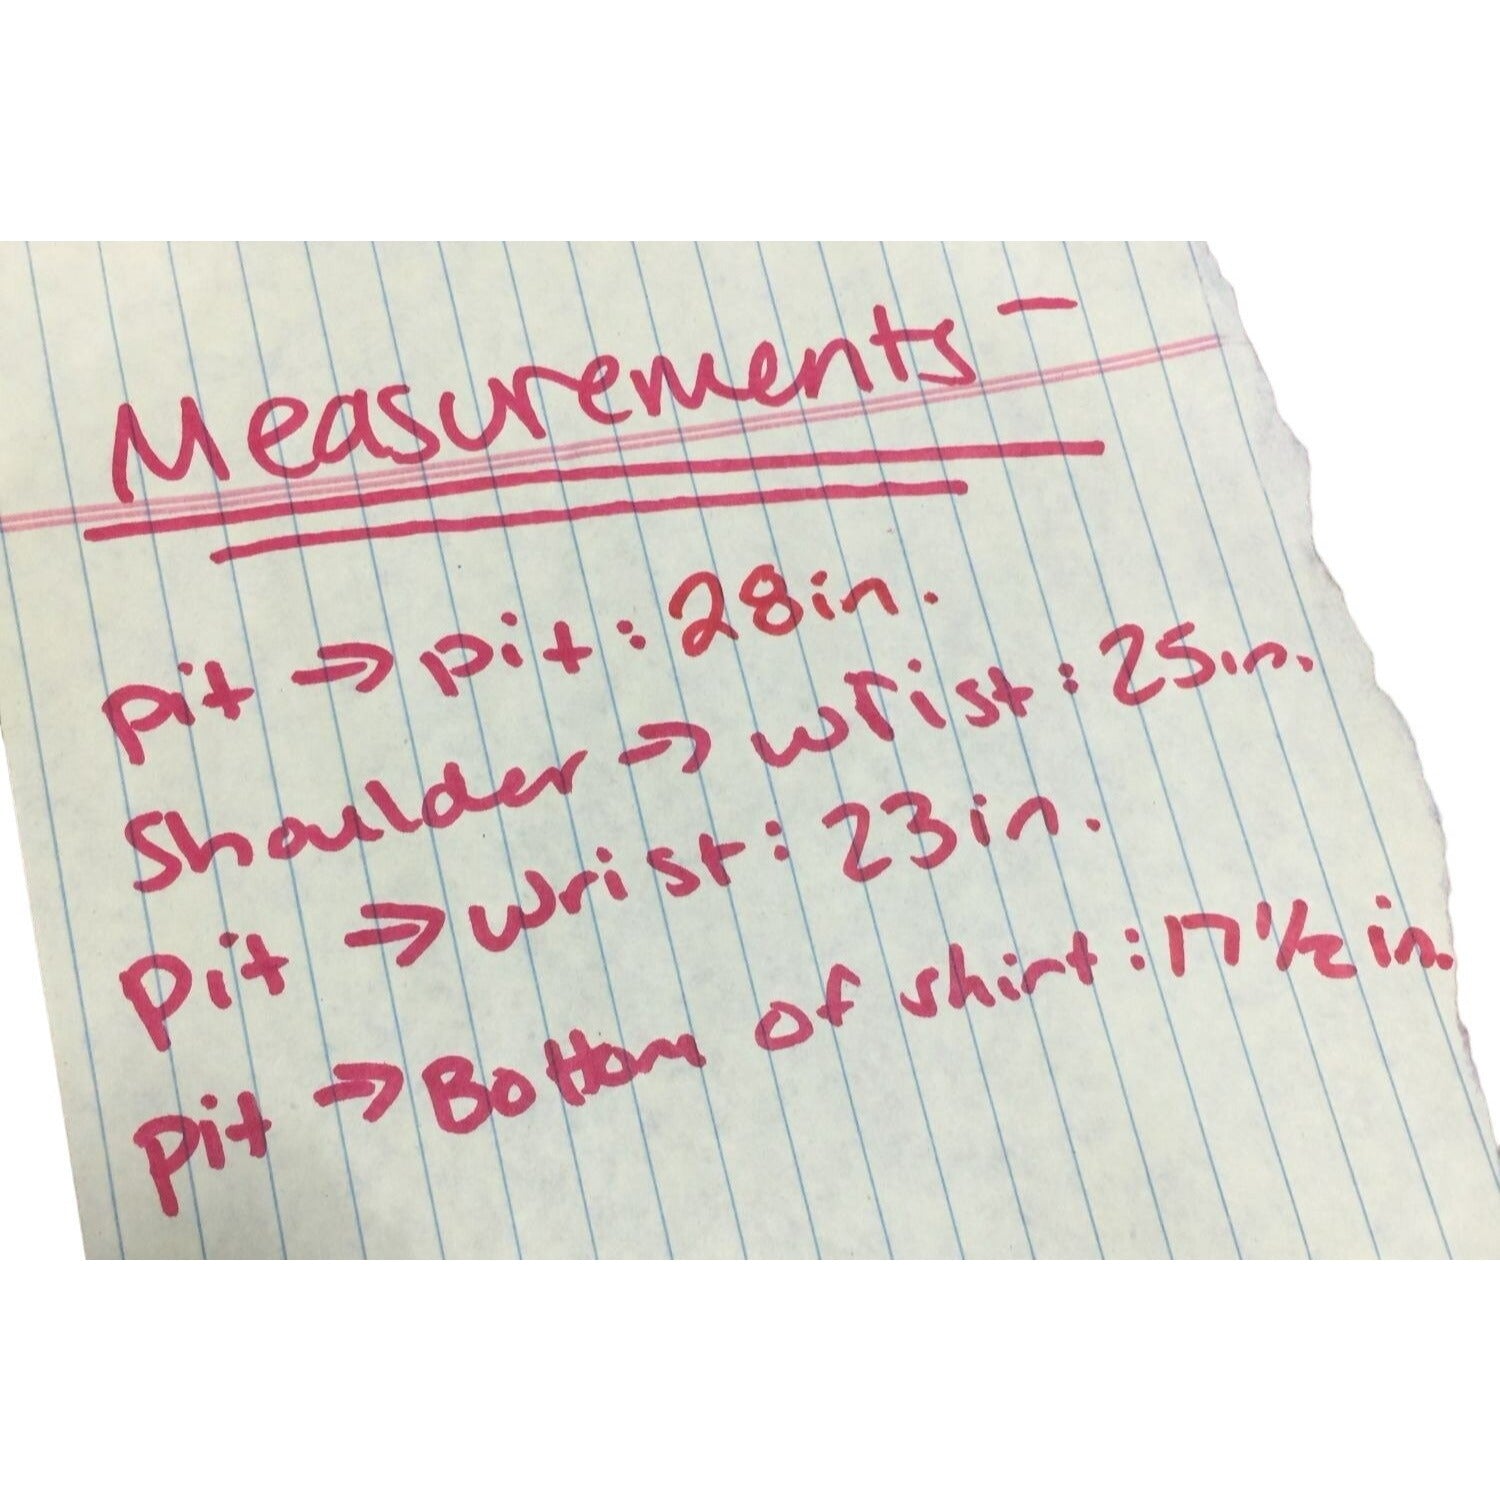 Measurements –
pit → pit: 28in.
Shoulder → wrist: 25in.
pit → wrist: 23in.
pit → Bottom of shirt: 17 1/2 in.